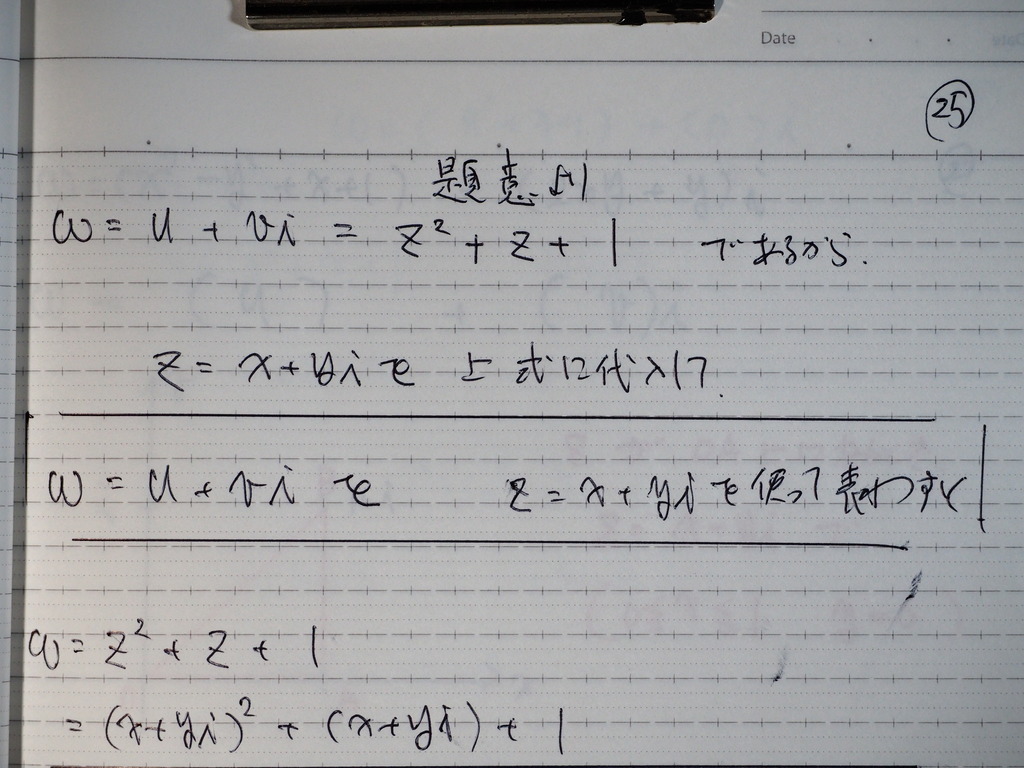 Date
25
題意より
ω = u + vi = z² + z + 1 であるから.
z = x + yi を 上式に代入して.
ω = u + vi を z = x + yi を使って表わすと
ω = z² + z + 1
= (x+yi)² + (x+yi) + 1